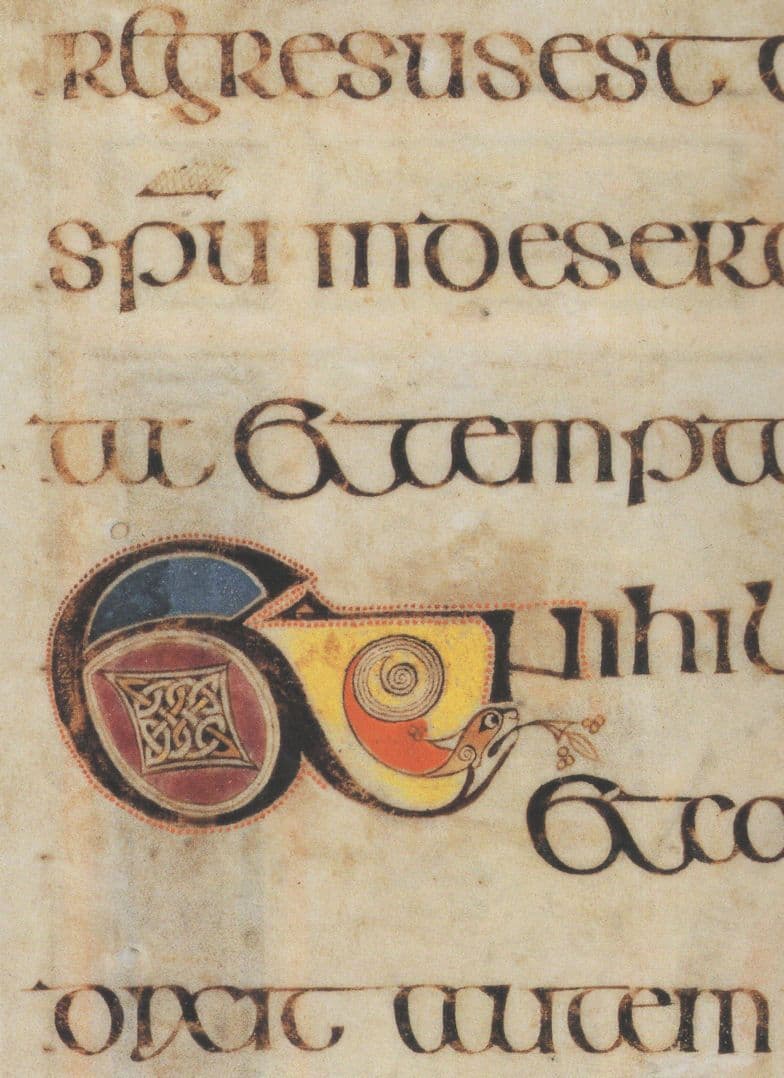 regresus est
sp̄u in desert
et tempta
Et nihil
et co
dixit autem